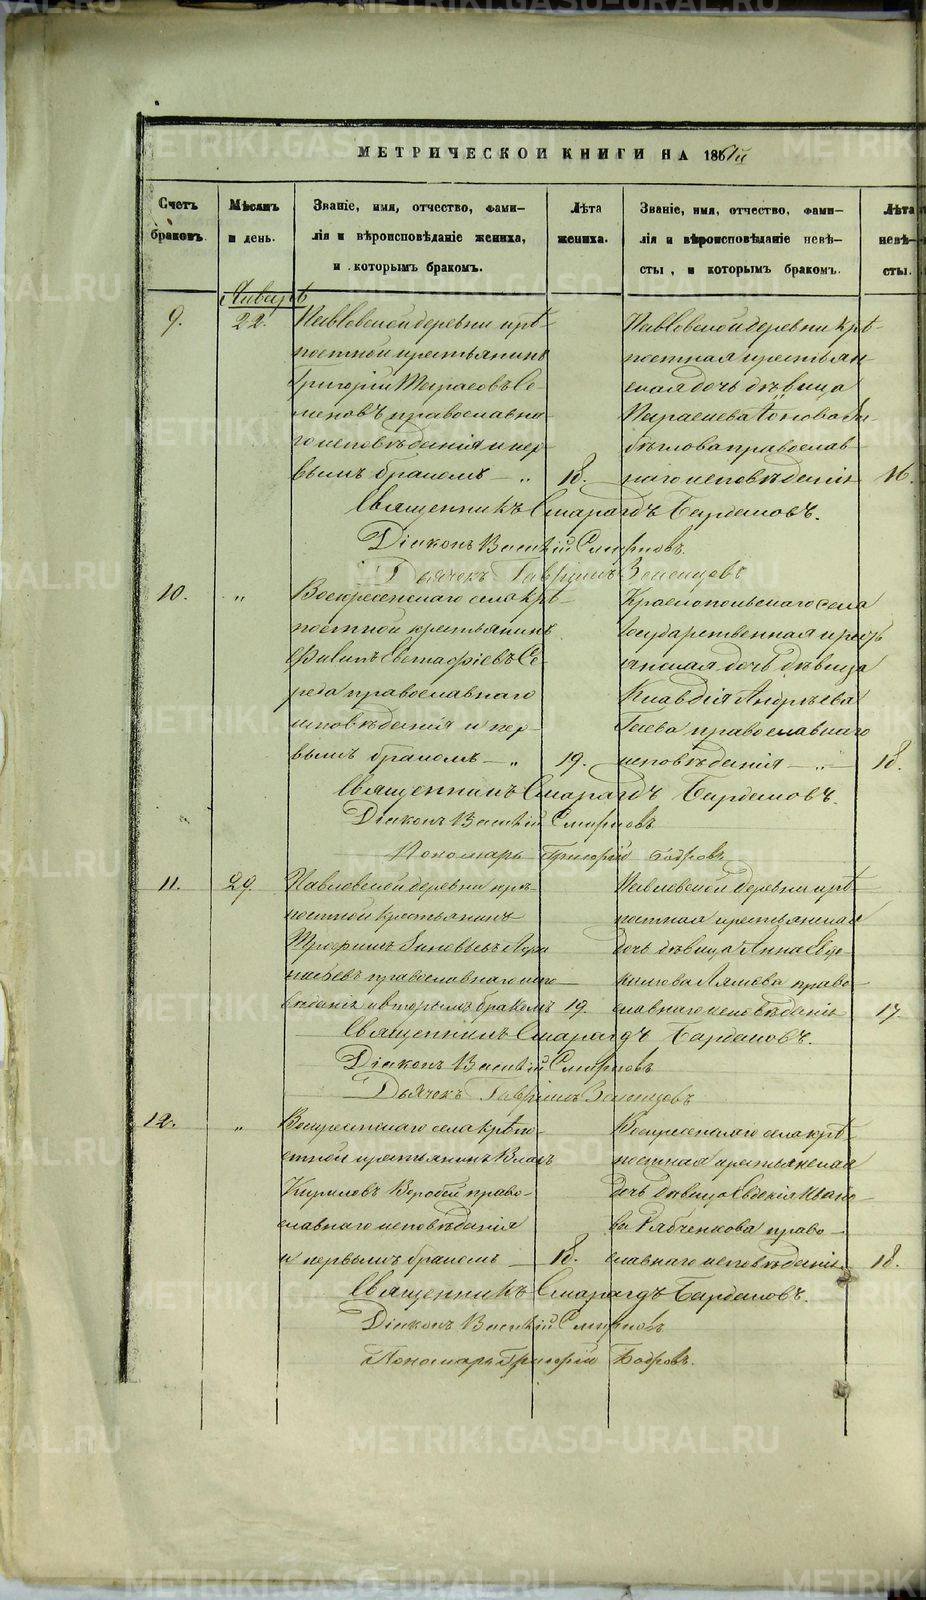 МЕТРИЧЕСКОЙ КНИГИ НА 1861й
Счетъ браковъ.
Мѣсяцъ и день.
Званіе, имя, отчество, фами-
лія и вѣроисповѣданіе жениха,
и которымъ бракомъ.
Лѣта жениха.
Званіе, имя, отчество, фами-
лія и вѣроисповѣданіе невѣ-
сты, и которымъ бракомъ.
Лѣта невѣ-
сты.
Январь
9.
22.
Павловской деревни крѣ-
постной крестьянинъ
Григорій Тарасовъ Се-
меновъ православна-
го исповѣданія и пер-
вымъ бракомъ — „
18.
Павловской деревни крѣ-
постная крестьян-
ская дочь дѣвица
православ-
наго исповѣданія
16.
Священникъ Смарагдъ Бардаковъ.
Діаконъ Василій Смирновъ
Дьячекъ Гавріилъ
10.
„
Воскресенскаго села крѣ-
постной крестьянинъ
Филипъ Евстафіевъ Се-
реда православнаго
исповѣданія и пер-
вымъ бракомъ — „
19.
Краснопольскаго села
государственная кресть
янская дочь дѣвица
Клавдія Андрѣева
православнаго
исповѣданія — „ —
18.
Священникъ Смарагдъ Бардаковъ.
Діаконъ Василій Смирновъ
Пономарь Григорій Бобровъ
11.
29
Павловской деревни крѣ-
постной крестьянинъ
Трофимъ Зиновьевъ Афа
насьевъ православнаго испо-
вѣданія и вторымъ бракомъ
19.
Павловской деревни крѣ-
постная крестьянская
дочь дѣвица Анна
право-
славнаго исповѣданія
17.
Священникъ Смарагдъ Бардаковъ.
Діаконъ Василій Смирновъ
Дьячекъ Гавріилъ
12.
„
Воскресенскаго села крѣпо-
стной крестьянинъ Власъ
Кириловъ Воробей право-
славнаго исповѣданія
и первымъ бракомъ —
18.
Воскресенскаго села крѣ-
постная крестьянская
дочь дѣвица Евдокія Ивано-
ва Рябченкова право-
славнаго исповѣданія.
18.
Священникъ Смарагдъ Бардаковъ.
Діаконъ Василій Смирновъ
Пономарь Григорій Бобровъ.
METRIKI.GASO-URAL.RU